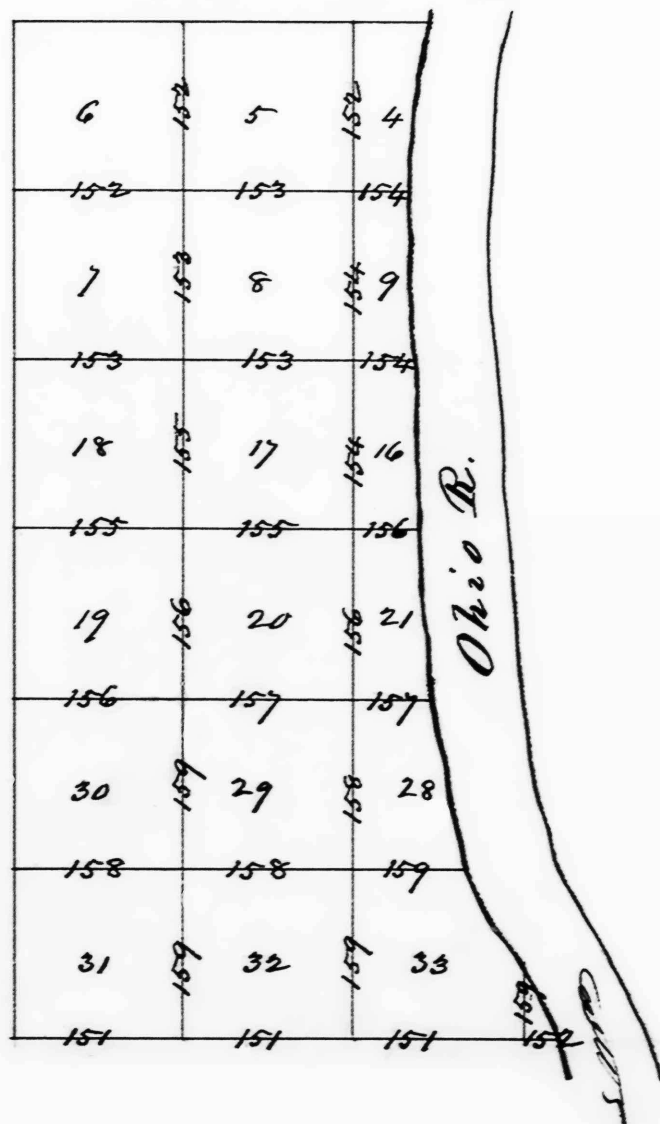 6 152 5 152 4
152 153 154
7 153 8 154 9
153 153 154
18 155 17 154 16
155 155 156
19 156 20 156 21
156 157 157
30 159 29 158 28
158 158 159
31 159 32 159 33 159
151 151 151 152
Ohio R.